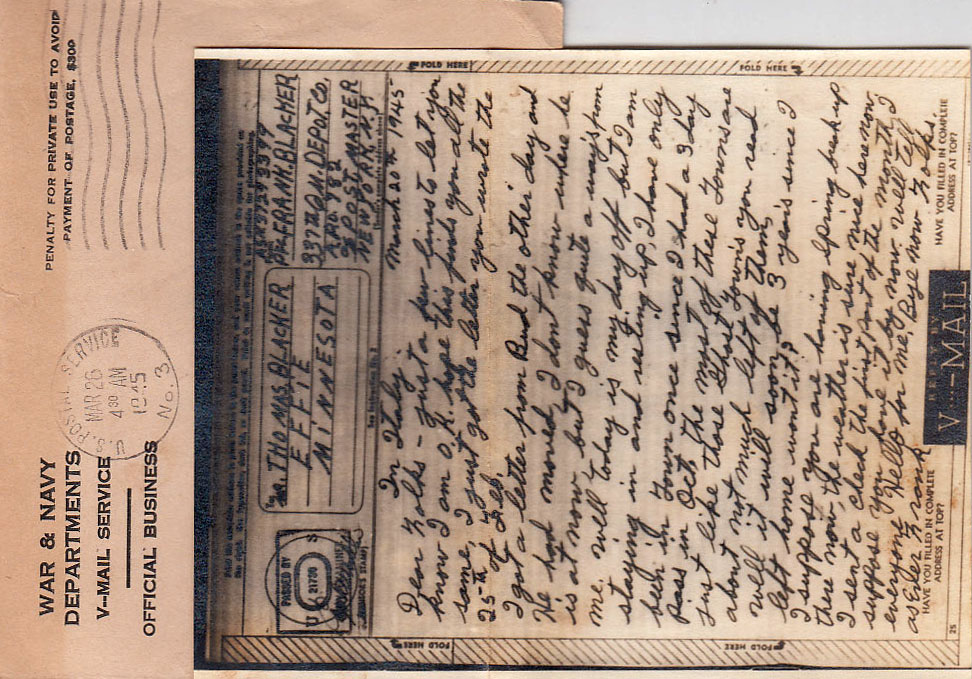 WAR & NAVY
DEPARTMENTS
V--MAIL SERVICE
OFFICIAL BUSINESS
PENALTY FOR PRIVATE USE TO AVOID
PAYMENT OF POSTAGE, $300
U.S. POSTAL SERVICE
MAR 26
4 30 AM
1945
No. 3
FOLD HERE
FOLD HERE
PASSED BY
U S
21706
To
Mr. THOMAS BLACKER
EFFIE
MINNESOTA
Pfc FRANK BLACKER
337th Q.M. DEPOT. Co.
APO 782
% POSTMASTER
NEW YORK. N.Y.
March 20th 1945
In Italy.
Dear Folks - Just a few lines to let you
know I am O.K. hope this finds you all the
same, I just got the letter you wrote the
25th of Feb.
I got a letter from Bud the other day and
He had moved, I dont know where he
is at now but I guess quite a ways from
me. well today is my day off but I am
staying in and resting up, I have only
been in Town once since I had a 3 day
pass in Oct the most of these Towns are
just like those Ghost Towns you read
about not much left of them,
well it will soon be 3 years since I
left home wont it?
I suppose you are having spring break up
there now, the weather is sure nice here now,
I sent a check the first part of the month I
suppose you have it by now, now well tell
everyone Hello for me. Bye now Folks.
as Ever Frank
HAVE YOU FILLED IN COMPLETE
ADDRESS AT TOP?
V---MAIL
HAVE YOU FILLED IN COMPLETE
ADDRESS AT TOP?
FOLD HERE
FOLD HERE